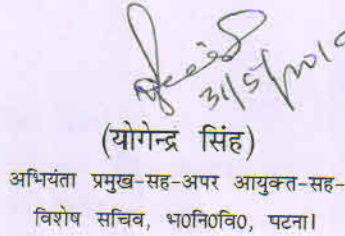 31/5/2019
(योगेन्द्र सिंह)
अभियंता प्रमुख-सह-अपर आयुक्त-सह-
विशेष सचिव, भ0नि0वि0, पटना।